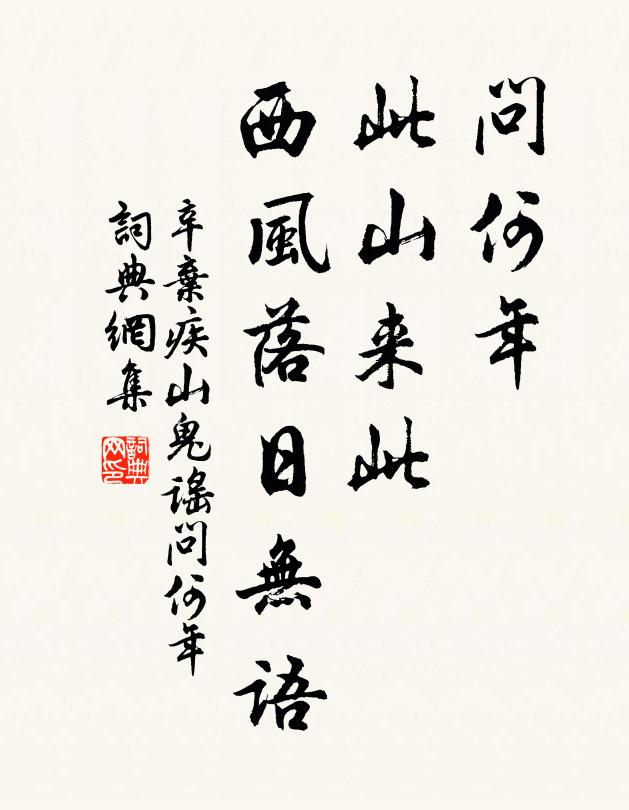 問何年
此山来此
西風落日無語
辛棄疾山鬼謠問何年
詞典網集
詞典網印